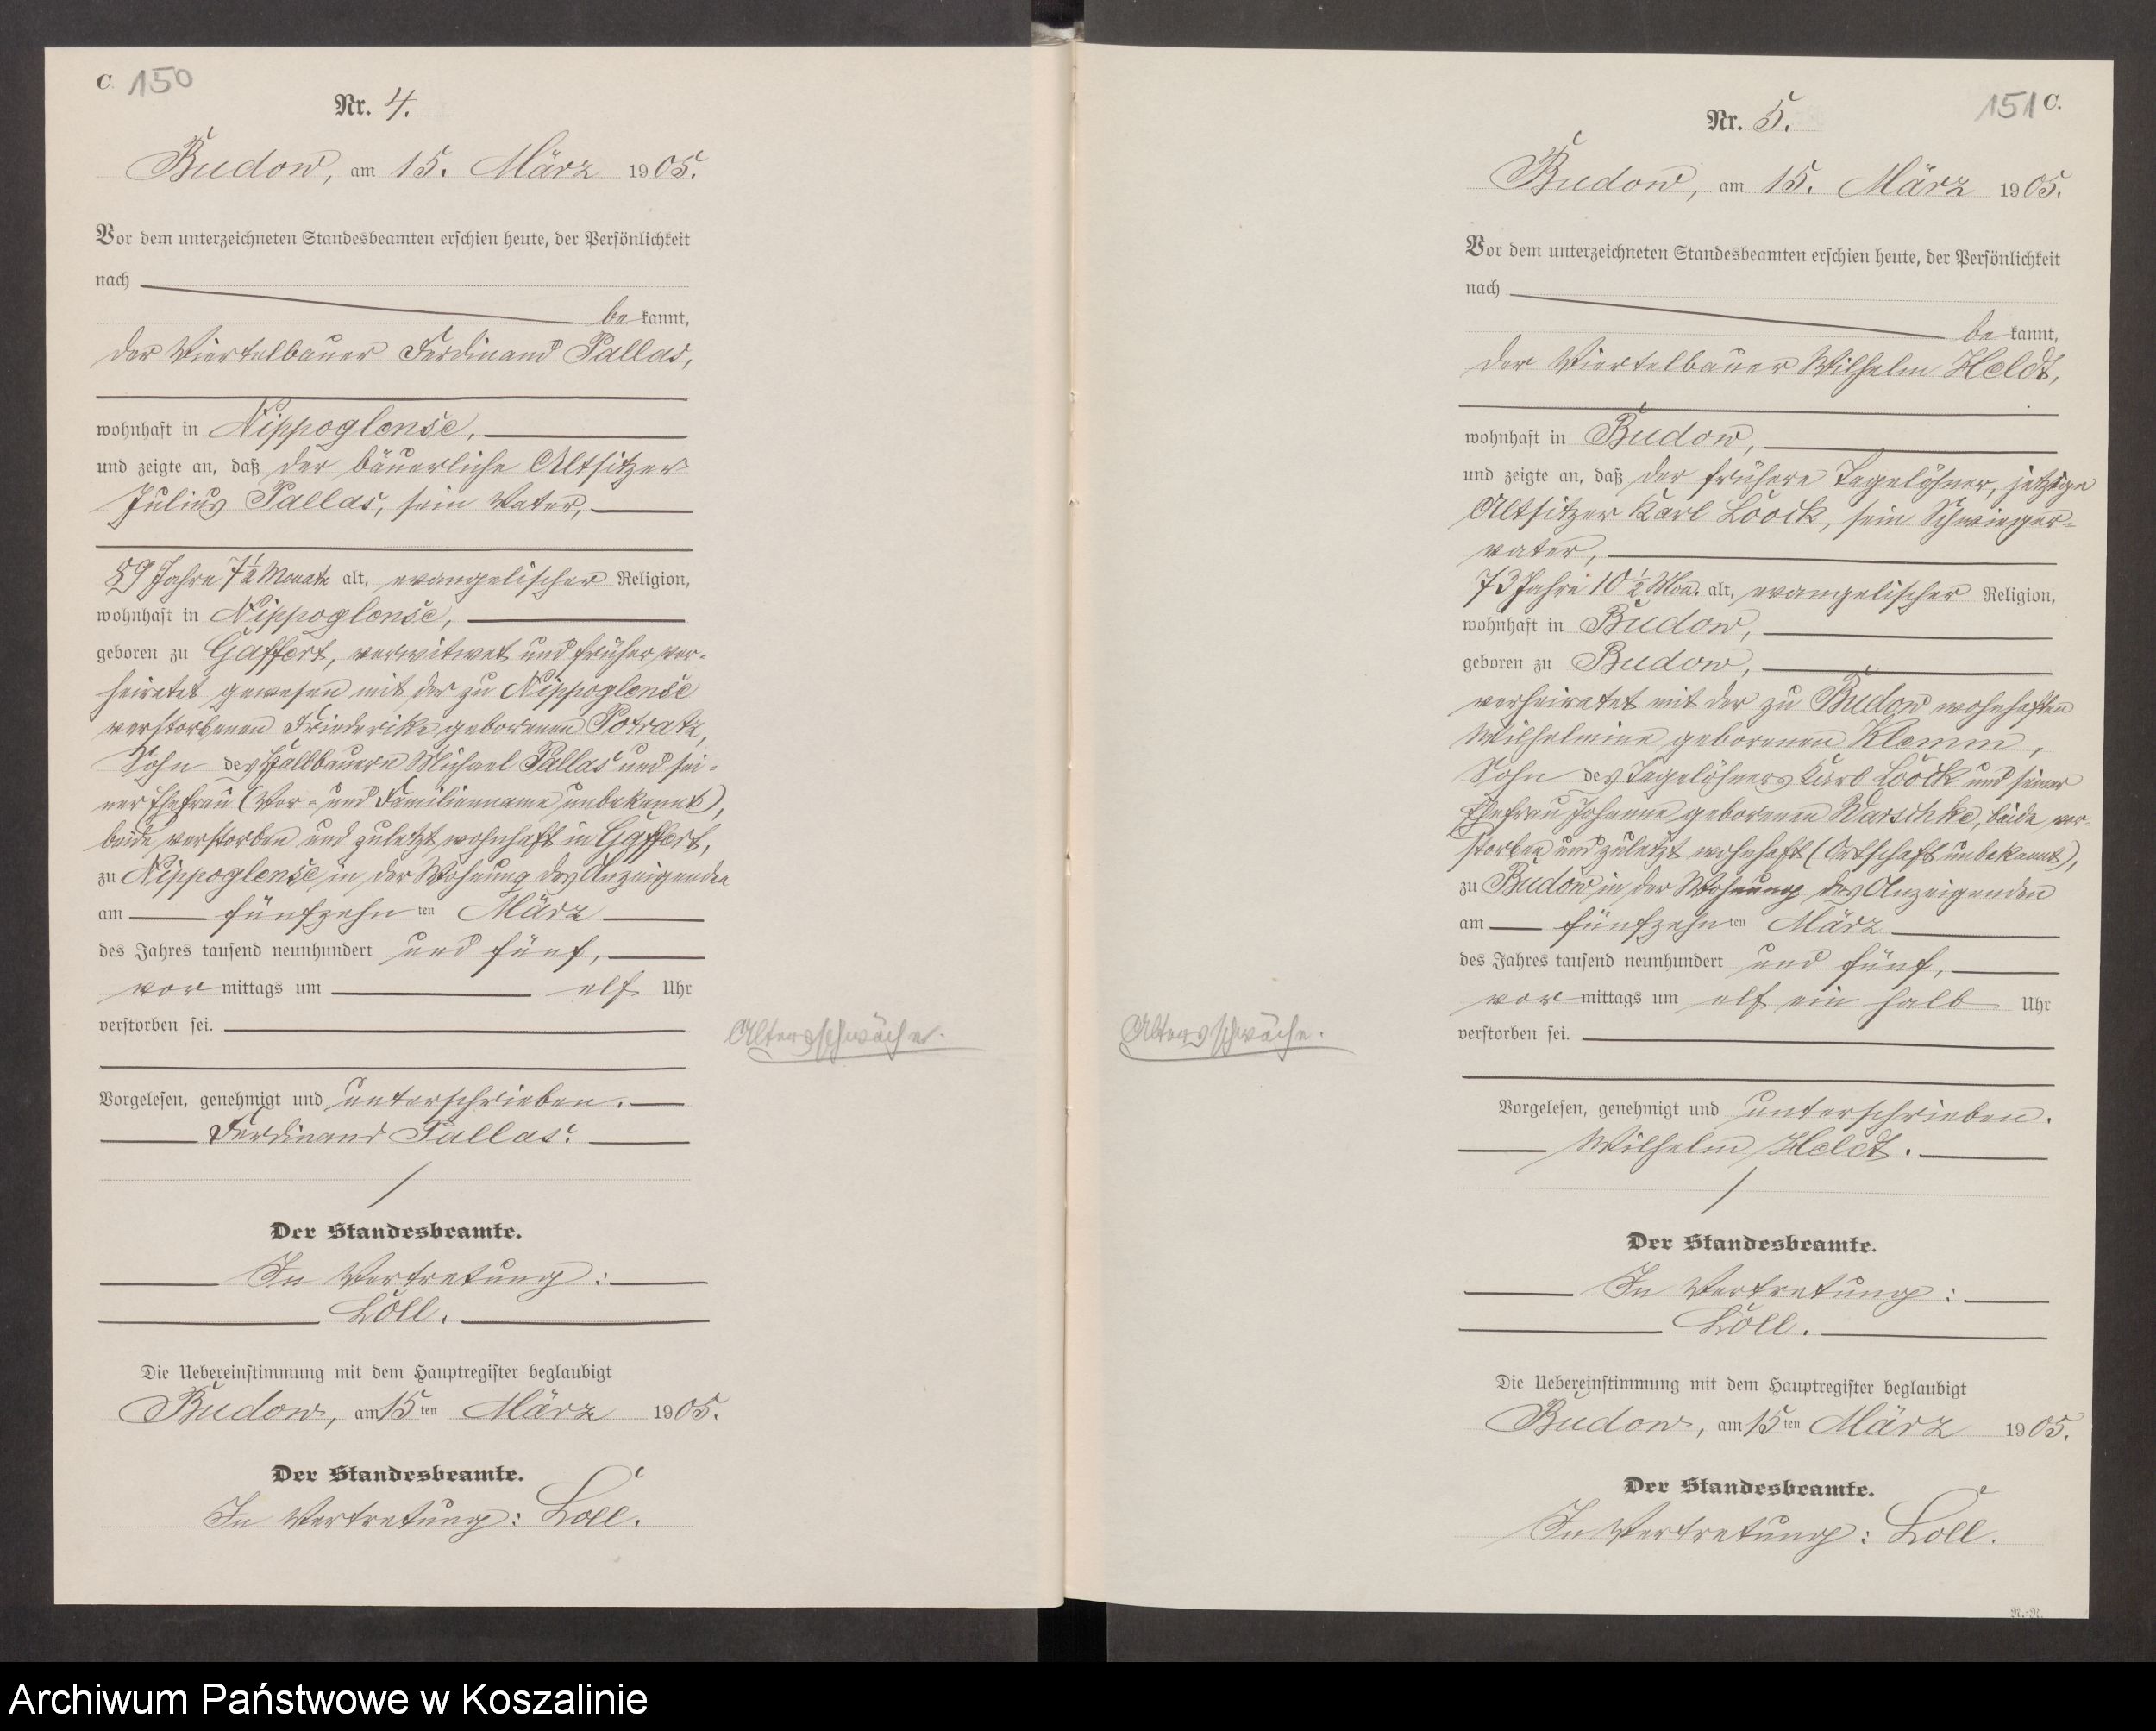 C. 150
Nr. 4.
Budow, am 15. März 1905.
Vor dem unterzeichneten Standesbeamten erschien heute, der Persönlichkeit
nach
be kannt,
der Viertelbauer Ferdinand Pallas,
wohnhaft in Nippoglense,
und zeigte an, daß der bäuerliche Altsitzer
Julius Pallas, sein Vater,
89 Jahre 7½ Monate alt, evangelischer Religion,
wohnhaft in Nippoglense,
geboren zu Gaffert, verwitwet und früher ver-
heiratet gewesen mit der zu Nippoglense
verstorbenen Friederike geborenen Potratz,
Sohn des Halbbauern Michael Pallas und sei-
ner Ehefrau (Vor- und Familienname unbekannt),
beide verstorben und zuletzt wohnhaft in Gaffert,
zu Nippoglense in der Wohnung des Anzeigenden
am fünfzehn ten März
des Jahres tausend neunhundert und fünf,
vor mittags um elf Uhr
verstorben sei.
Altersschwäche.
Vorgelesen, genehmigt und unterschrieben.
Ferdinand Pallas.
Der Standesbeamte.
In Vertretung:
Loll.
Die Uebereinstimmung mit dem Hauptregister beglaubigt
Budow, am 15 ten März 1905.
Der Standesbeamte.
In Vertretung: Loll.
151 C.
Nr. 5.
Budow, am 15. März 1905.
Vor dem unterzeichneten Standesbeamten erschien heute, der Persönlichkeit
nach
be kannt,
der Viertelbauer Wilhelm Heldt,
wohnhaft in Budow,
und zeigte an, daß der frühere Tagelöhner, jetzige
Altsitzer Karl Loock, sein Schwieger-
vater,
73 Jahre 10½ Mon. alt, evangelischer Religion,
wohnhaft in Budow,
geboren zu Budow,
verheiratet mit der zu Budow wohnhaften
Wilhelmine geborenen Klemm,
Sohn des Tagelöhners Karl Loock und seiner
Ehefrau Johanne geborenen Warschke, beide ver-
storben und zuletzt wohnhaft (Ortschaft unbekannt),
zu Budow in der Wohnung des Anzeigenden
am fünfzehn ten März
des Jahres tausend neunhundert und fünf,
vor mittags um elf ein halb Uhr
verstorben sei.
Altersschwäche.
Vorgelesen, genehmigt und unterschrieben.
Wilhelm Heldt.
Der Standesbeamte.
In Vertretung:
Loll.
Die Uebereinstimmung mit dem Hauptregister beglaubigt
Budow, am 15 ten März 1905.
Der Standesbeamte.
In Vertretung: Loll.
R.-R.
Archiwum Państwowe w Koszalinie